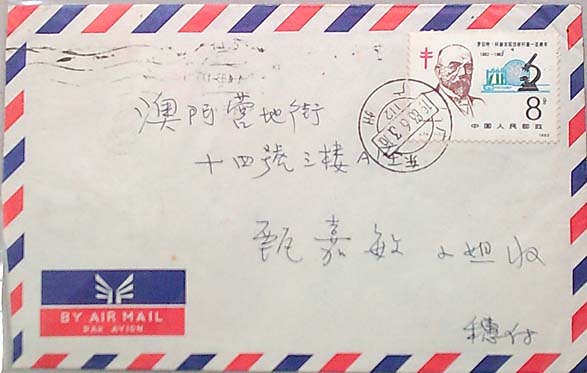 罗伯特·科赫发现结核杆菌一百周年
1882-1982
8分
中国人民邮政
1982
广东
广州
澳门營地街
十四號三楼A座
甄嘉敏小姐收
BY AIR MAIL
PAR AVION
穗付